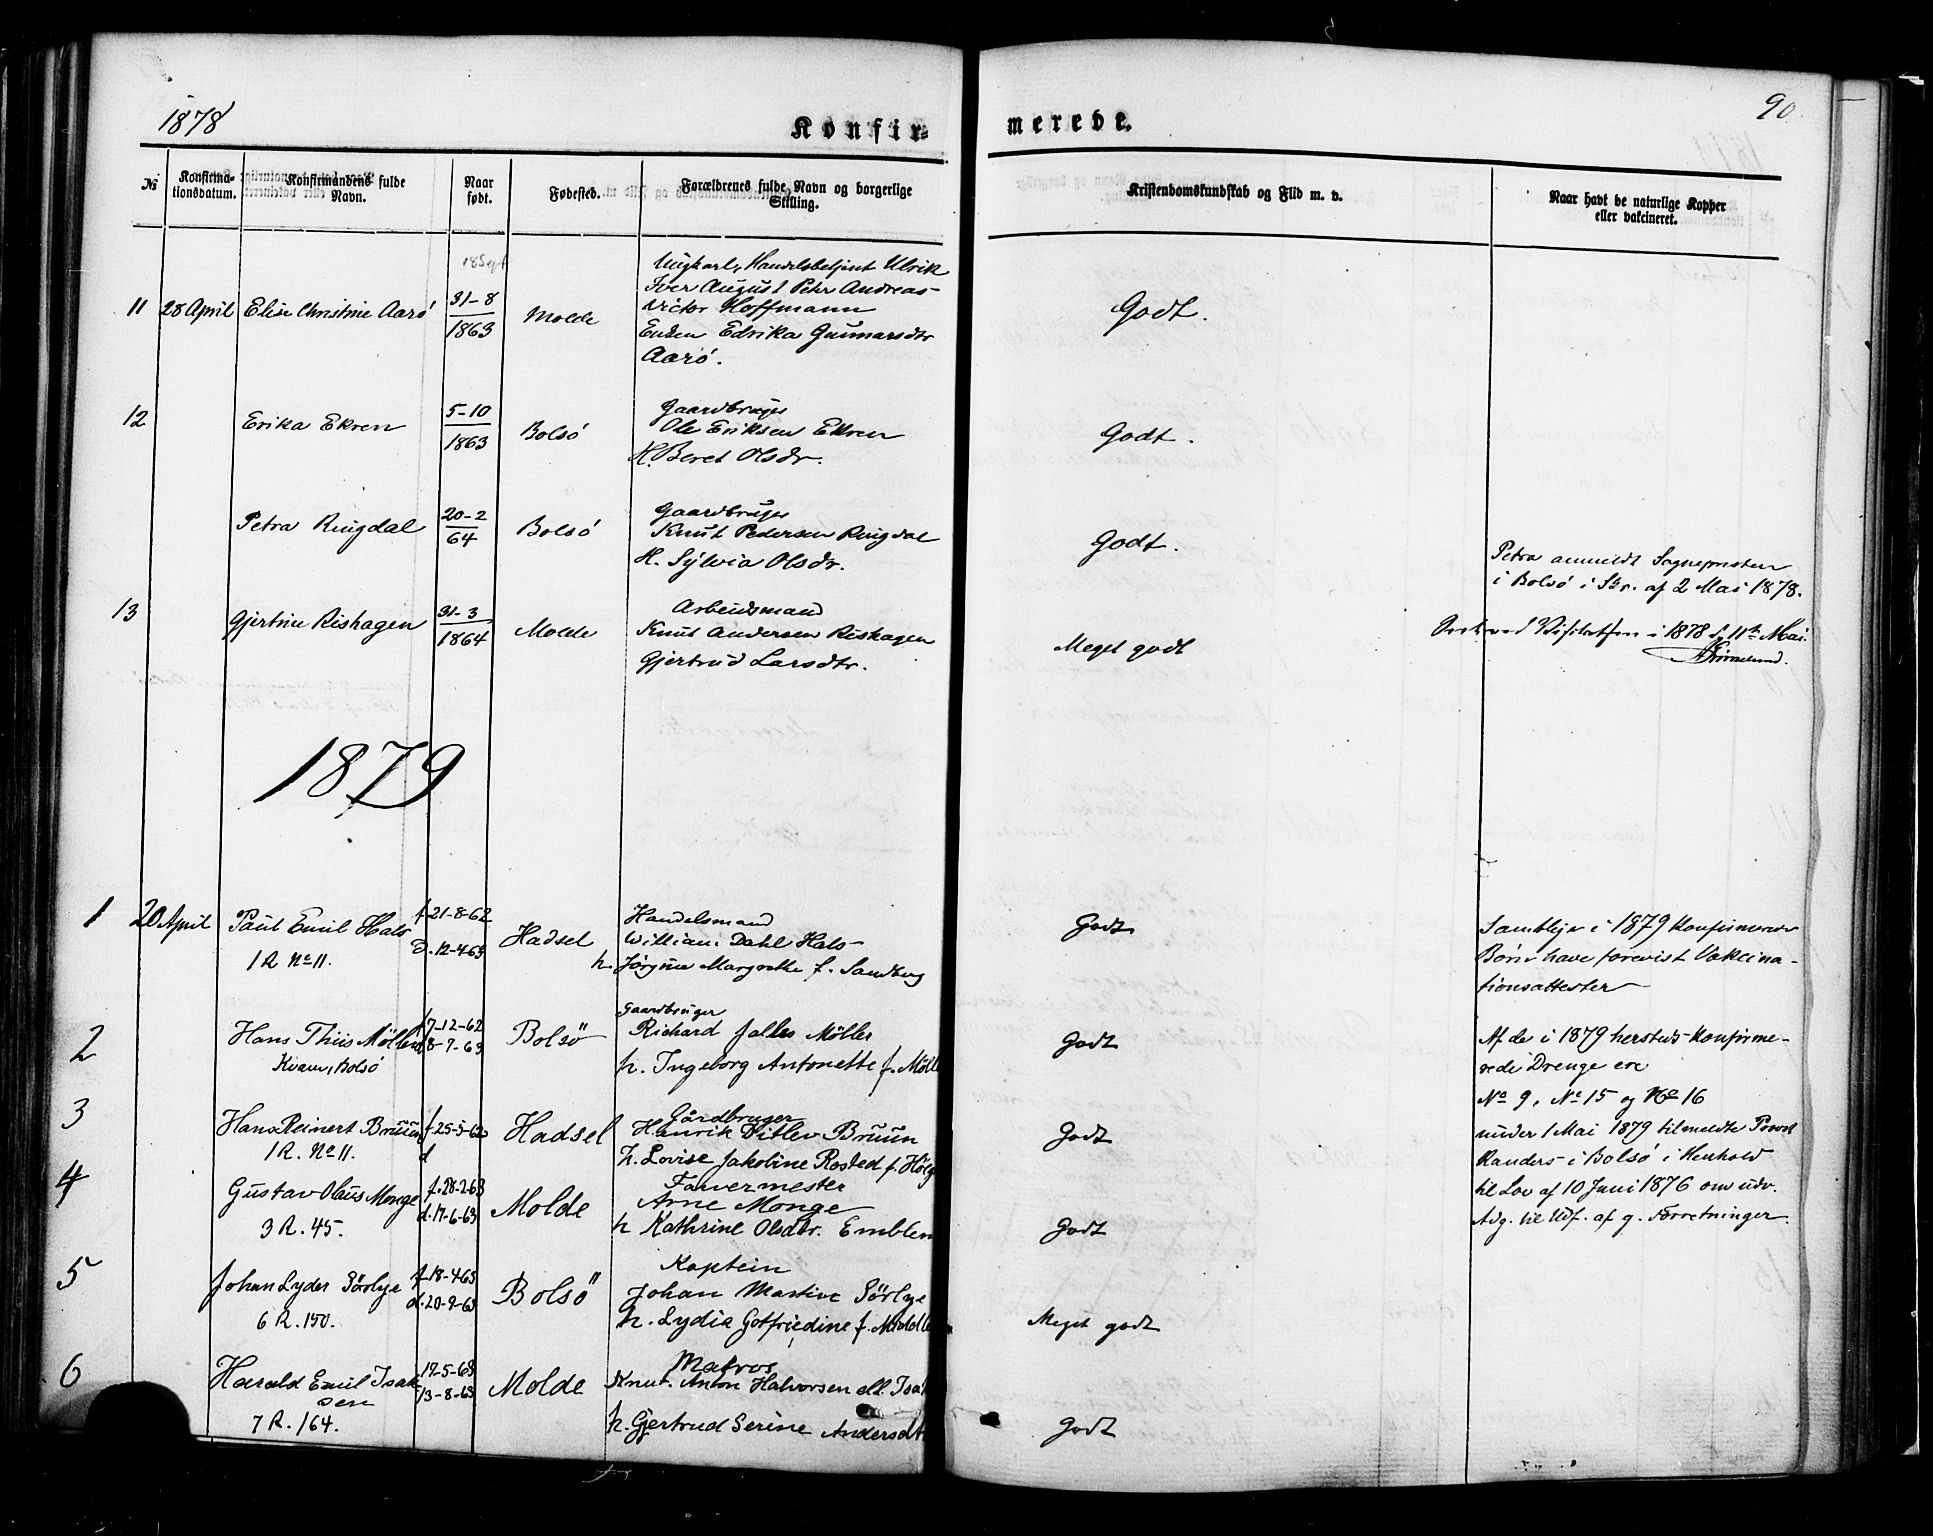 1878
Konfir-
merede.
90.
№
Konfirma-
tionsdatum.
Konfirmandens fulde
Navn.
Naar
født.
Fødested.
Forældrenes fulde Navn og borgerlige
Stilling.
Kristendomskundskab og Flid m. v.
Naar havt de naturlige Kopper
eller vakcineret.
18 Sept
11 28 April Elise Christine Aarö 31-8
1863 Molde
Ungkarl, Handelsbetjent Ulrik
Iver August Peter Andreas
Victor Hoffmann
Enken Edrika Gunnarsdtr
Aarö.
Godt.
12 Erika Ekren 5-10
1863 Bolsö
Gaardbruger
Ole Eriksen Ekren
H. Beret Olsdr.
Godt.
Petra Ringdal 20-2
64 Bolsö
Gaardbruger
Knut Pedersen Ringdal
H. Sylvia Olsdr.
Godt.
Petra anmeldt Sognepresten
i Bolsö i Skr. af 2 Mai 1878.
13 Gjertine Rishagen 31-3
1864 Molde
Arbeidsmand
Knut Andersen Rishagen
Gjertrud Larsdtr.
Meget godt
ved Visitatsen i 1878 d. 11te Mai.
1879
1 20 April Paul Emil Hals
1 R No 11.
f. 21-8-62
D. 12-4-63
Hadsel
Handelsmand
William Dahl Hals
h. Jörgine Margrethe f. Sandberg
Godt
Samtlige i 1879 Konfirmerede
Börn have forevist Vakcina-
tionsattester
2 Hans Thiis Möller
Kvam, Bolsö
7-12-62
8-7-63
Bolsö
Gaardbruger
Richard Falles Möller
h. Ingeborg Antonette f. Mölle
Godt
Af de i 1879 hersteds Konfirme-
rede Drenge ere
No 9, No 15 og No 16
3 Hans Reinert Bruun
1 R. No 11.
f. 25-5-62
d
Hadsel
Gårdbruger
Henrik Ditlev Bruun
h. Lovise Jakobine Rosted f. Holg
Godt
under 1 Mai 1879 tilmeldte Provst
Randers i Bolsö i Henhold
til Lov af 10 Juni 1876 om udv.
Adg. til Udf. af g. Forretninger.
4 Gustav Olaus Monge
3 R. 45.
f. 28-2-63
d. 17-6-63
Molde
Farvermester
Arne Monge
h Kathrine Olsdtr. Emblem
Godt
5 Johan Lyder Sörlye
6 R. 150.
f. 18-4-63
d. 20-9-63
Bolsö
Kaptein
Johan Martin Sörlye
h. Lydia Gotfriedine f. Möldle
Meget godt
6 Harald Emil Isak
sen
7 R. 164.
19-5-63
13-8-63
Molde
Matros
Knut Anton Halvorsen ell. Isak
h. Gjertrud Serine Andersdt
Godt